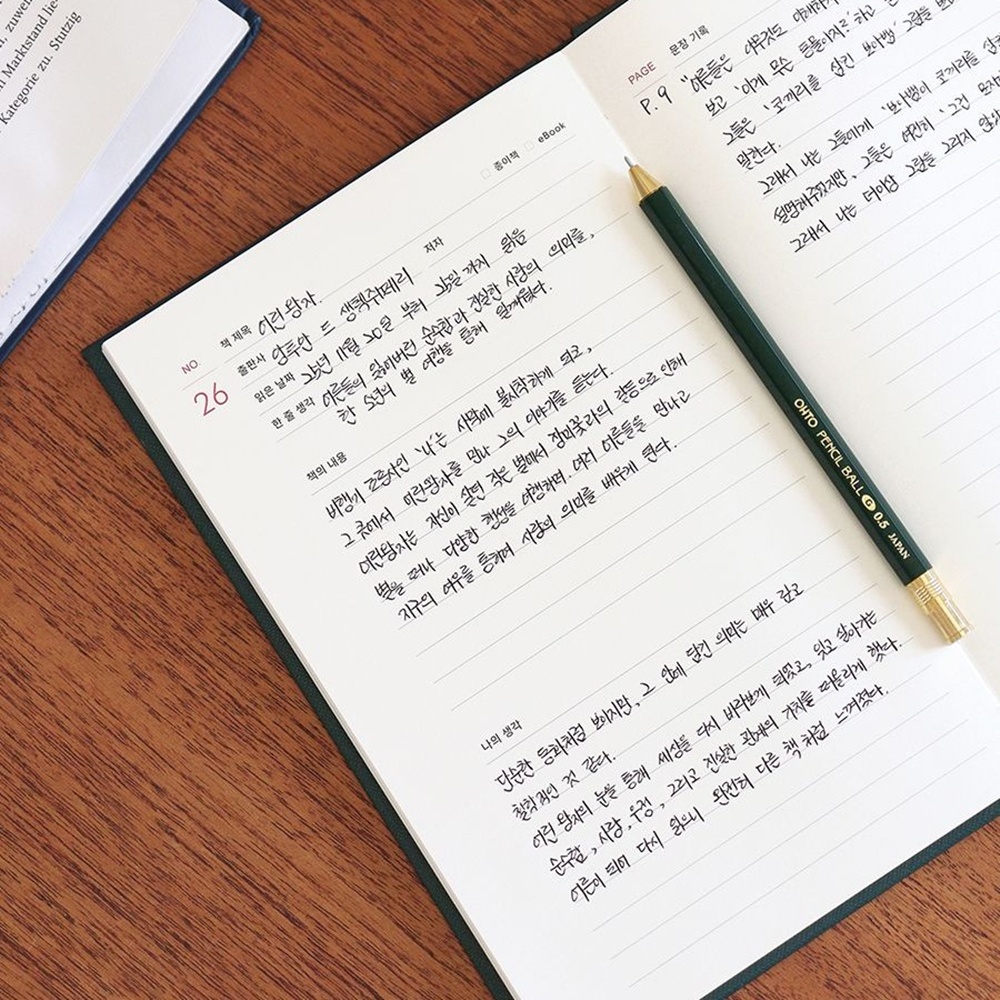 , zuwen
m Marktstand lie
Kategorie zu. Stutzig
□ 종이책 □ eBook
NO
26
책 제목 어린왕자.
저자
출판사 앙투안 드 생텍쥐페리
읽은 날짜 25년 11월 20일 부터 25일 까지 읽음
한 줄 생각 어른들의 잃어버린 순수함과 진실한 사랑의 의미를,
한 소년의 별 여행을 통해 일깨웠다.
책의 내용
비행기 조종사인 '나'는 사막에 불시착하게 되고,
그 곳에서 어린왕자를 만나 그의 이야기를 듣는다.
어린왕자는 자신이 살던 작은 별에서 장미꽃과의 갈등으로 인해
별을 떠나 다양한 행성을 여행하며. 여러 어른들을 만나고
지구의 여우를 통하여 사랑의 의미를 배우게 된다.
나의 생각
단순한 동화처럼 보이지만, 그 안에 담긴 의미는 매우 깊고
철학적인 것 같다.
어린 왕자의 눈을 통해 세상을 다시 바라보게 되었고, 잊고 살아가는
순수함, 사랑, 우정, 그리고 진실한 관계의 가치를 떠올리게 했다.
어른이 되어 다시 읽으니 완전히 다른 책 처럼 느껴졌다.
문장 기록
PAGE
P. 9 "어른들은 아무것도
보고 '이게 무슨 동물이지?' 하고
그들은 '코끼리를 삼킨 보아뱀' 그림을
말한다.
그래서 나는 그들에게 '보아뱀이 코끼리를
설명해주었지만, 그들은 여전히 '그건 모자
그래서 나는 더이상 그림을 그리지 않았
OHTO PENCIL BALL G 0.5 JAPAN